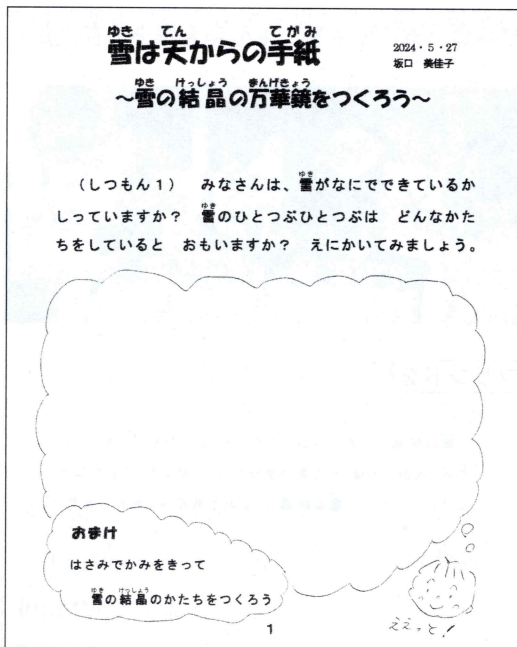 雪は天からの手紙
2024・5・27
坂口 美佳子
～雪の結晶の万華鏡をつくろう～
（しつもん1） みなさんは、雪がなにでできているか
しっていますか？ 雪のひとつぶひとつぶは どんなかた
ちをしていると おもいますか？ えにかいてみましょう。
おまけ
はさみでかみをきって
雪の結晶のかたちをつくろう
ええっと！
1